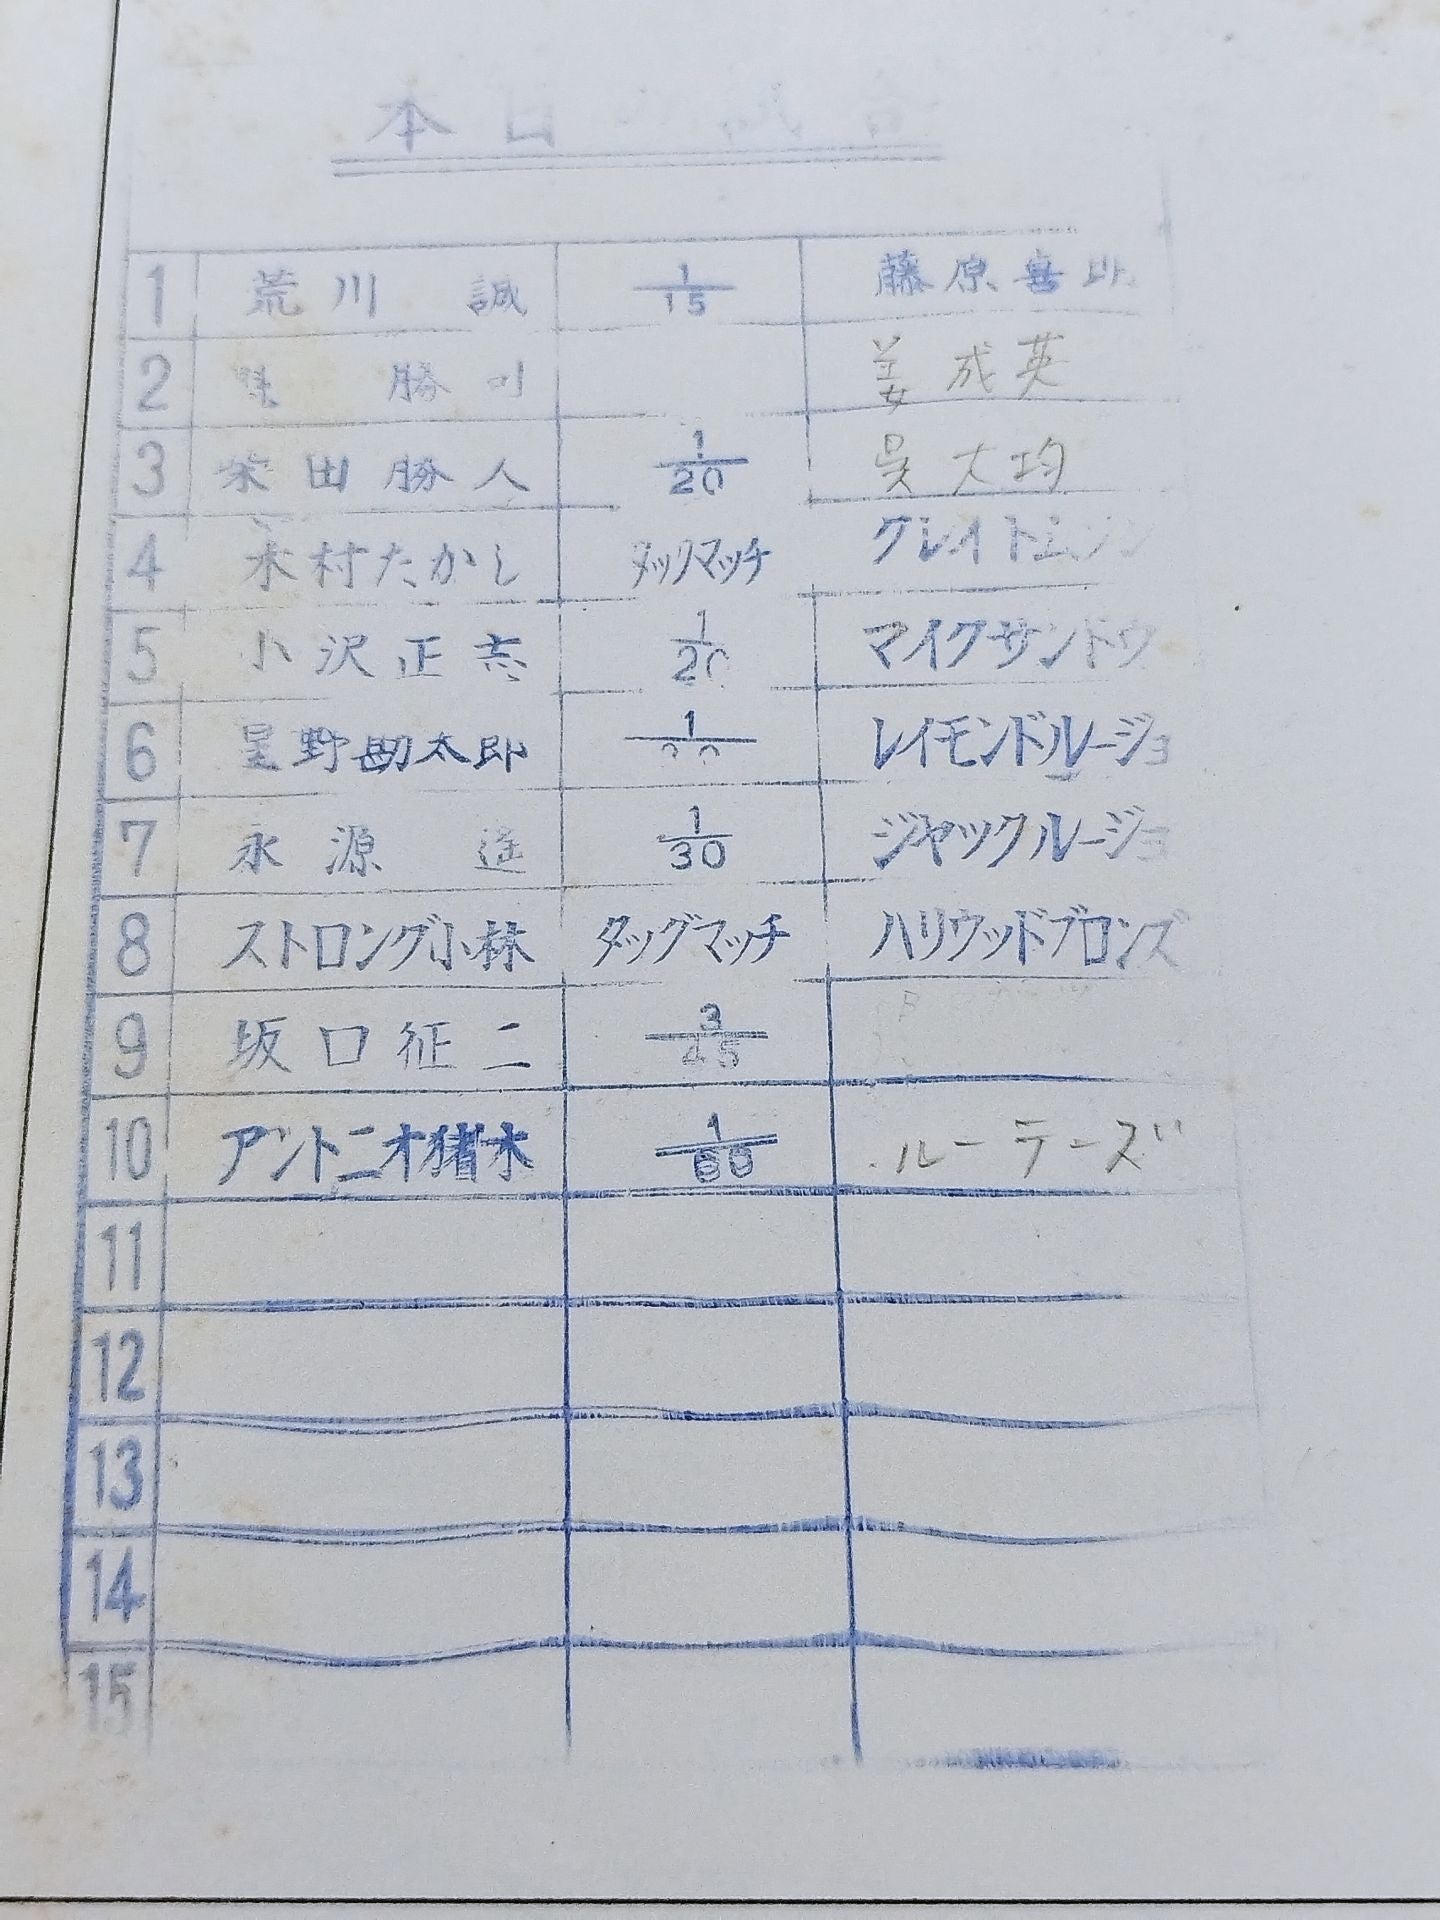 本日 試合
1 荒川 誠 1/15 藤原喜
2 勝利 姜成英
3 柴田勝人 1/20 呉大均
4 木村たかし タッグマッチ クレイト
5 小沢正志 1/20 マイクサンドウ
6 星野勘太郎 1 レイモンドルージョ
7 永源 遥 1/30 ジャックルージョ
8 ストロング小林 タッグマッチ ハリウッドブロンズ
9 坂口征二 3/45
10 アントニオ猪木 1/60 ルーテーズ
11
12
13
14
15